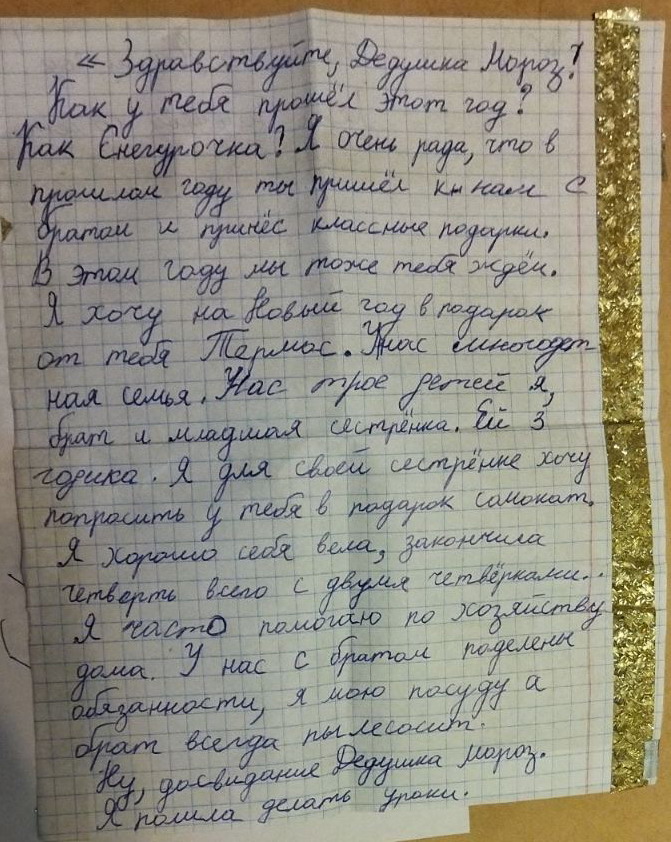 « Здравствуйте, Дедушка Мороз!
Как у тебя прошёл этот год?
Как Снегурочка? Я очень рада, что в
прошлом году ты пришёл к нам с
братом и принёс классные подарки.
В этом году мы тоже тебя ждём.
Я хочу на Новый год в подарок
от тебя Термос. У нас многодет
ная семья. Нас трое детей я,
брат и младшая сестрёнка. Ей 3
годика. Я для своей сестрёнке хочу
попросить у тебя в подарок самокат.
Я хорошо себя вела, закончила
четверть всего с двумя четвёрками..
Я часто помогаю по хозяйству
дома. У нас с братом поделены
обязанности, я мою посуду а
брат всегда пылесосит.
Ну, досвидание Дедушка Мороз.
Я пошла делать уроки.